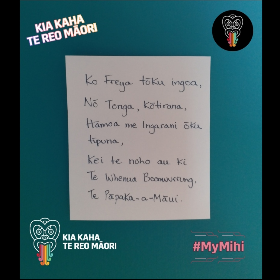 KIA KAHA
TE REO MĀORI
Ko Freya tōku ingoa,
Nō Tonga, Kōtirana,
Hāmoa me Ingarani ōku
tūpuna,
Kei te noho au ki
Te Whenua
Te Papaka-a-Māui.
KIA KAHA
TE REO MĀORI
#MyMihi